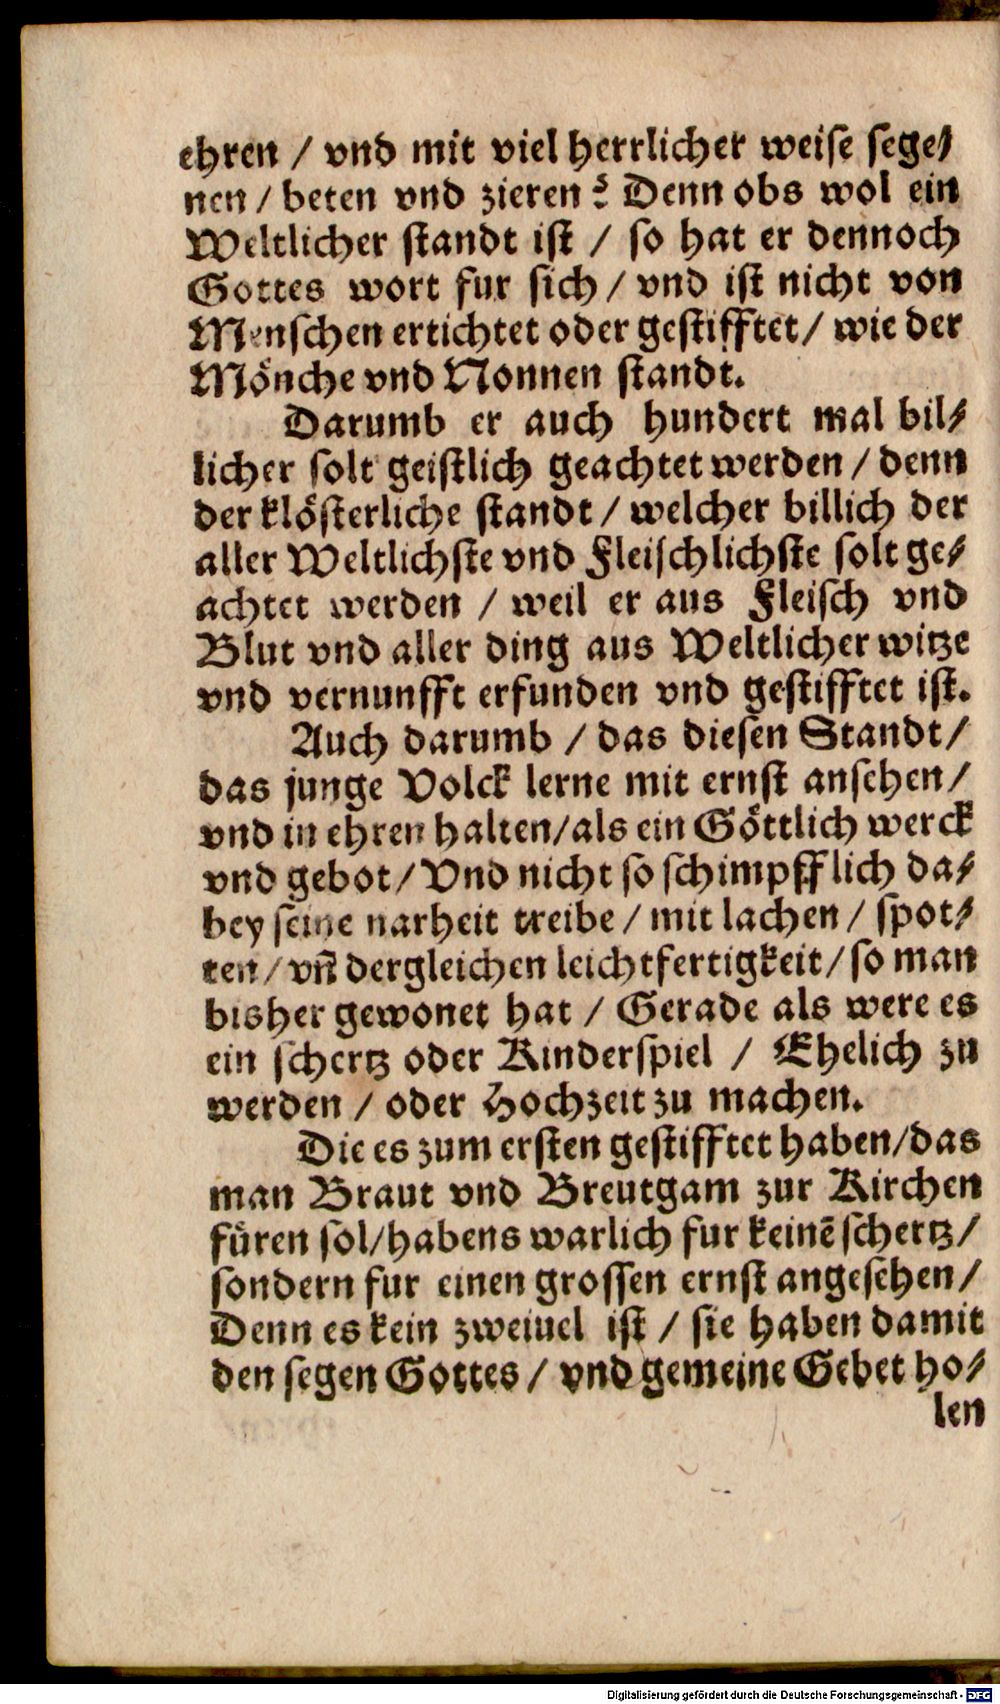 ehren / vnd mit viel herrlicher weise sege⸗
nen / beten vnd zieren? Denn obs wol ein
Weltlicher standt ist / so hat er dennoch
Gottes wort fur sich / vnd ist nicht von
Menschen ertichtet oder gestifftet / wie der
Mönche vnd Nonnen standt.
Darumb er auch hundert mal bil⸗
licher solt geistlich geachtet werden / denn
der klösterliche standt / welcher billich der
aller Weltlichste vnd Fleischlichste solt ge⸗
achtet werden / weil er aus Fleisch vnd
Blut vnd aller ding aus Weltlicher witze
vnd vernunfft erfunden vnd gestifftet ist.
Auch darumb / das diesen Standt /
das junge Volck lerne mit ernst ansehen /
vnd in ehren halten / als ein Göttlich werck
vnd gebot / Vnd nicht so schimpfflich da⸗
bey seine narheit treibe / mit lachen / spot⸗
ten / vñ dergleichen leichtfertigkeit / so man
bisher gewonet hat / Gerade als were es
ein schertz oder Kinderspiel / Ehelich zu
werden / oder Hochzeit zu machen.
Die es zum ersten gestifftet haben / das
man Braut vnd Breutgam zur Kirchen
füren sol / habens warlich fur keinē schertz /
sondern fur einen grossen ernst angesehen /
Denn es kein zweiuel ist / sie haben damit
den segen Gottes / vnd gemeine Gebet ho⸗
len
Digitalisierung gefördert durch die Deutsche Forschungsgemeinschaft - DFG